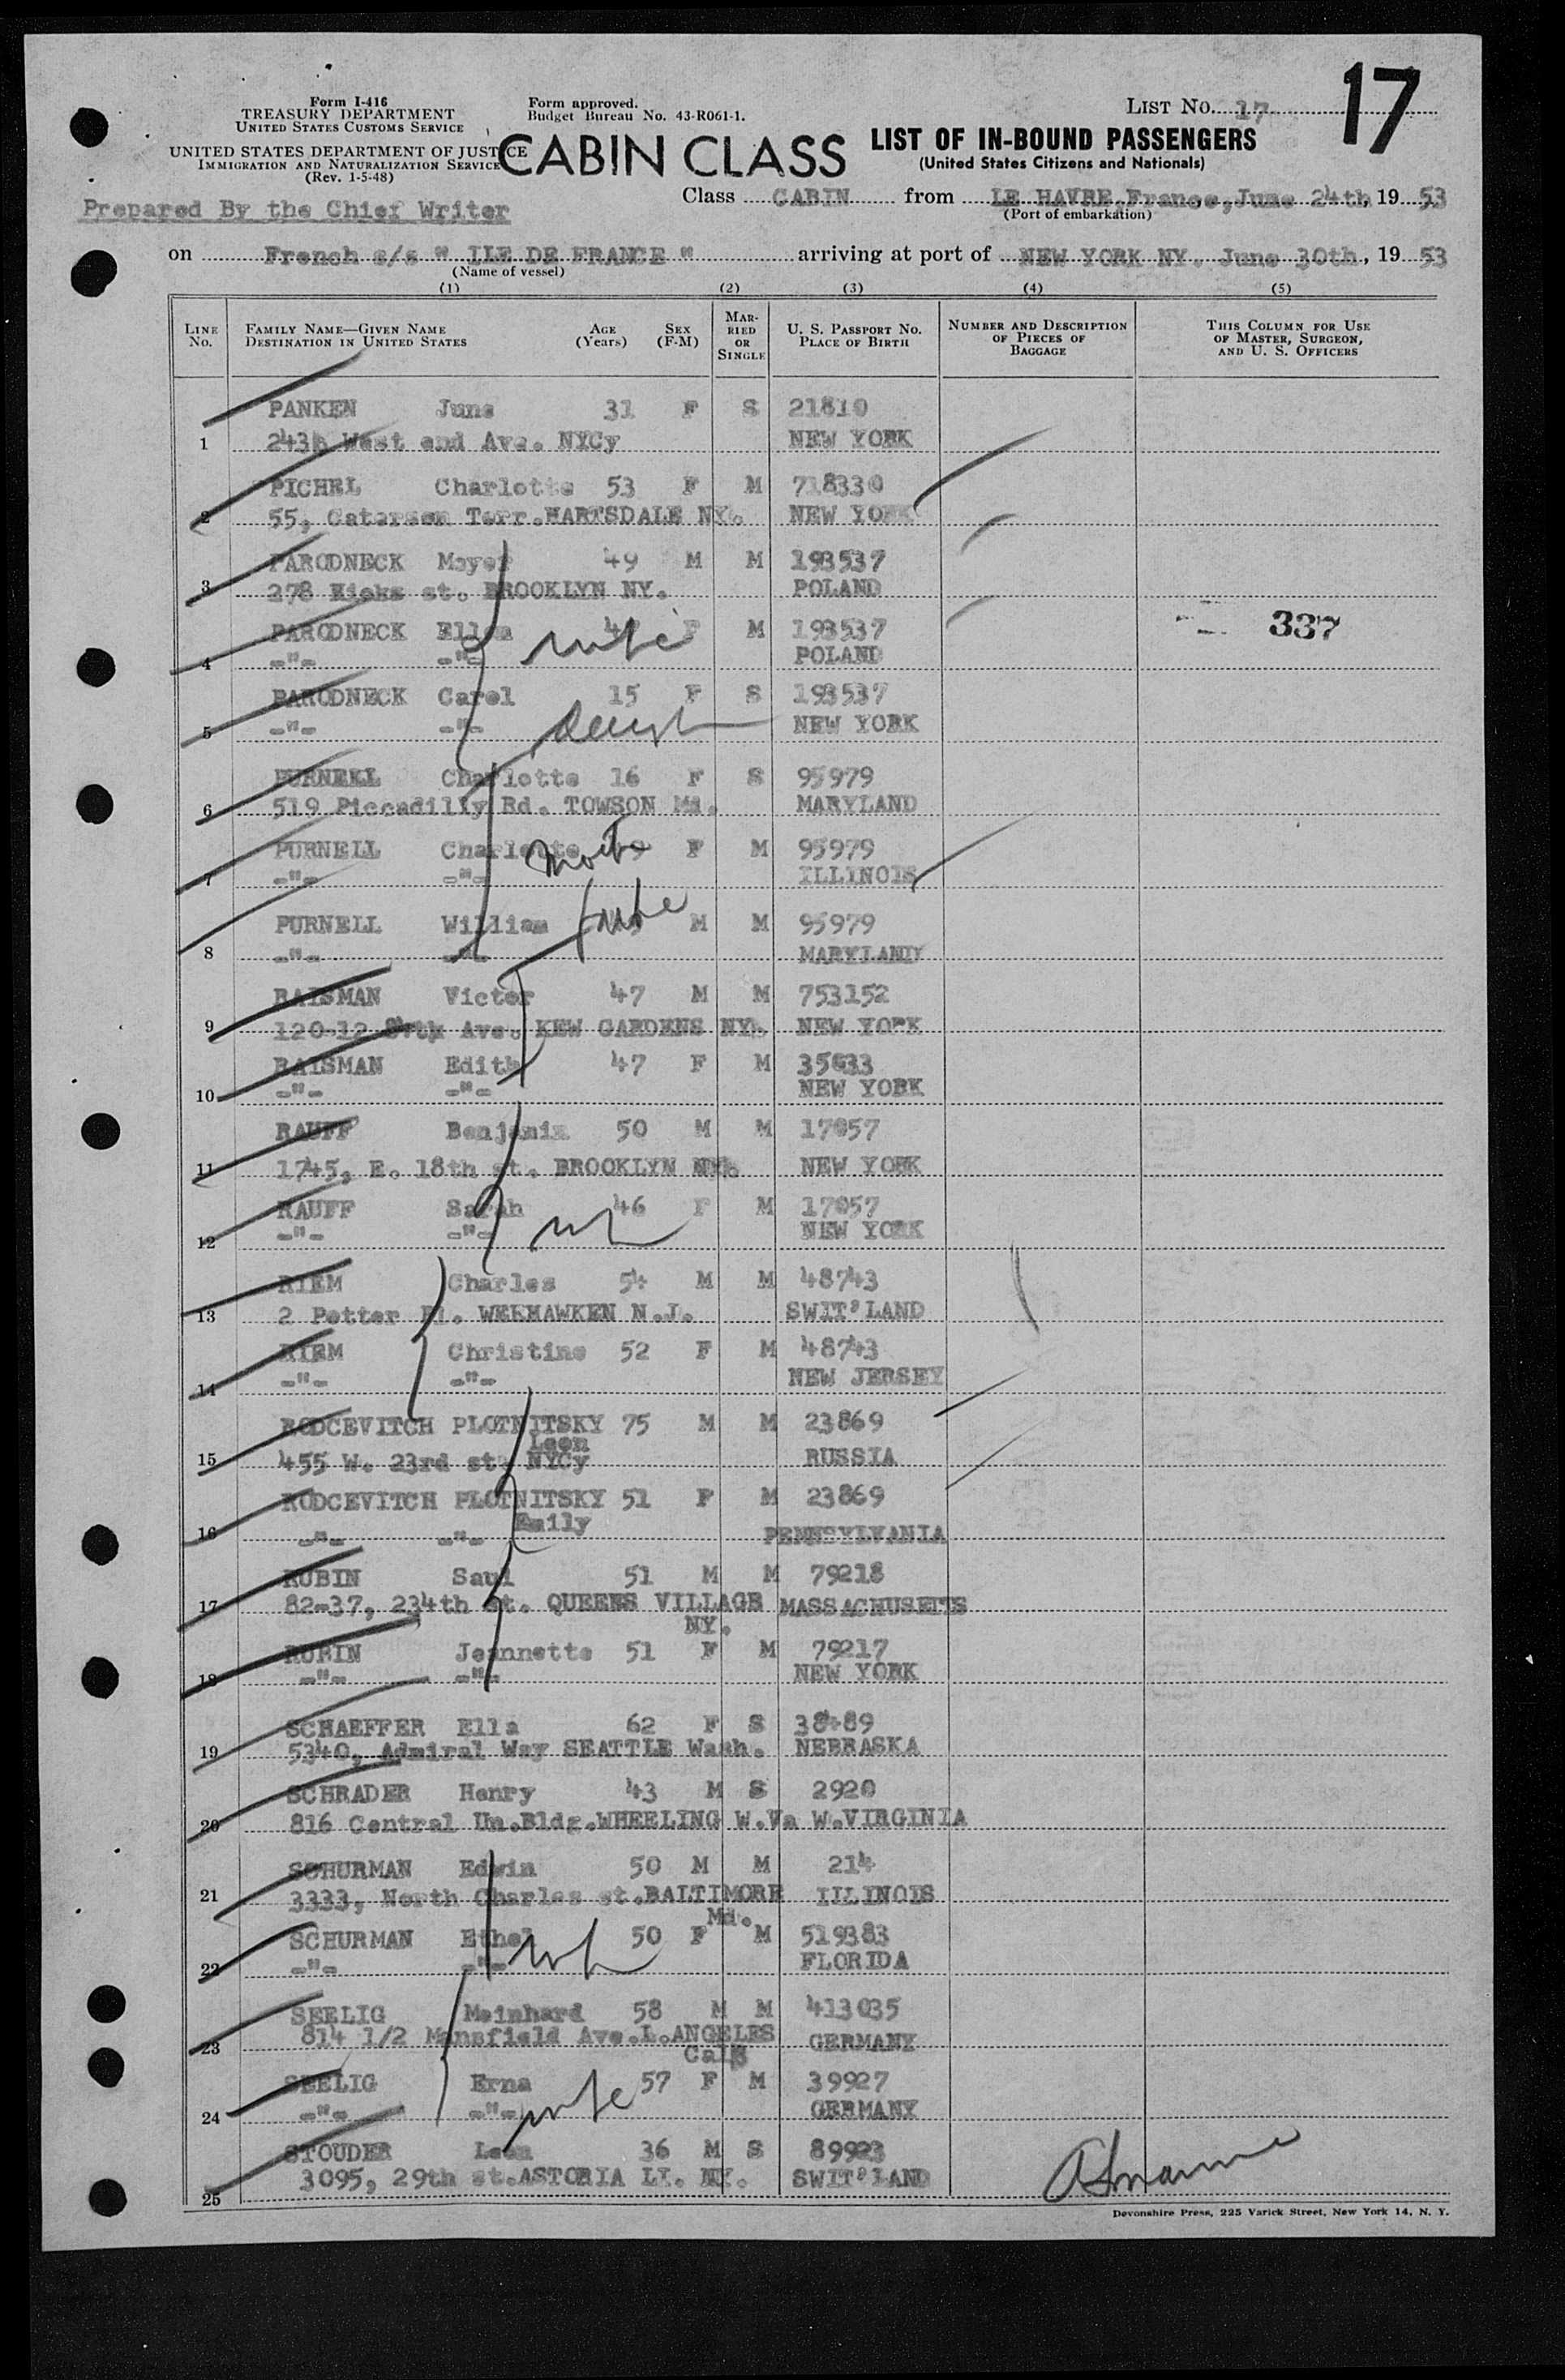 Form I-416
TREASURY DEPARTMENT
UNITED STATES CUSTOMS SERVICE
UNITED STATES DEPARTMENT OF JUSTICE
IMMIGRATION AND NATURALIZATION SERVICE
(Rev. 1-5-48)
Form approved.
Budget Bureau No. 43-R061-1.
CABIN CLASS
LIST NO. 17
17
LIST OF IN-BOUND PASSENGERS
(United States Citizens and Nationals)
Prepared By the Chief Writer
Class CABIN from LE HAVRE,France,June 24th, 19 53
(Port of embarkation)
on French s/s " ILE DE FRANCE " arriving at port of NEW YORK NY. June 30th, 19 53
(Name of vessel)
(1) (2) (3) (4) (5)
LINE No.
FAMILY NAME—GIVEN NAME
DESTINATION IN UNITED STATES
AGE (Years)
SEX (F-M)
MARRIED OR SINGLE
U. S. PASSPORT NO.
PLACE OF BIRTH
NUMBER AND DESCRIPTION OF PIECES OF BAGGAGE
THIS COLUMN FOR USE OF MASTER, SURGEON, AND U. S. OFFICERS
PANKEN June 31 F S 21810
1 West end Ave. NYCy NEW YORK
PICHEL Charlotte 53 F M 718330
2 55, Terr.HARTSDALE NY. NEW YORK
PARODNECK Meyer 49 M M 193537
3 278 Hicks st. BROOKLYN NY. POLAND
PARODNECK Ellen F M 193537
wife
337
4 -"- -"- POLAND
PARODNECK Carol 15 F S 193537
5 -"- -"- NEW YORK
PURNELL Charlotte 16 F S 95979
6 519 Piccadilly Rd. TOWSON Md. MARYLAND
PURNELL Charlotte F M 95979
7 -"- -"- ILLINOIS
PURNELL William M M 95979
8 -"- -"- MARYLAND
RAISMAN Victor 47 M M 753152
9 120-12 Ave. KEW GARDENS NY. NEW YORK
RAISMAN Edith 47 F M
10 -"- -"- NEW YORK
RAUFF Benjamin 50 M M 17057
11 1745, E. 18th st. BROOKLYN NY. NEW YORK
RAUFF Sarah 46 F M 17057
12 -"- -"- NEW YORK
RIEM Charles 54 M M 48743
13 2 Potter Pl. WEEHAWKEN N.J. SWIT'LAND
RIEM Christine 52 F M 48743
14 -"- -"- NEW JERSEY
RODCEVITCH PLOTNITSKY 75 M M 23869
Leon
15 455 W. 23rd st. NYCy RUSSIA
RODCEVITCH PLOTNITSKY 51 F M 23869
Emily
16 -"- -"- PENNSYLVANIA
RUBIN Saul 51 M M 79218
17 82-37, 234th st. QUEENS VILLAGE MASSACHUSETTS
NY.
RUBIN Jeannette 51 F M 79217
18 -"- -"- NEW YORK
SCHAEFFER Ella 62 F S 38489
19 5340, Admiral Way SEATTLE Wash. NEBRASKA
SCHRADER Henry 43 M S 2920
20 816 Central Un.Bldg.WHEELING W.Va W.VIRGINIA
SCHURMAN Edwin 50 M M 214
21 3333, North Charles st.BALTIMORE ILLINOIS
Md.
SCHURMAN Ethel 50 F M 519383
22 -"- -"- FLORIDA
SEELIG Meinhard 58 M M 413035
23 814 1/2 Mansfield Ave.L.ANGELES GERMANY
SEELIG Erna 57 F M 39927
wife
24 -"- -"- GERMANY
STOUDER Leon 36 M S 89923
25 3095, 29th st.ASTORIA LI. NY. SWIT'LAND
Devonshire Press, 225 Varick Street, New York 14, N. Y.